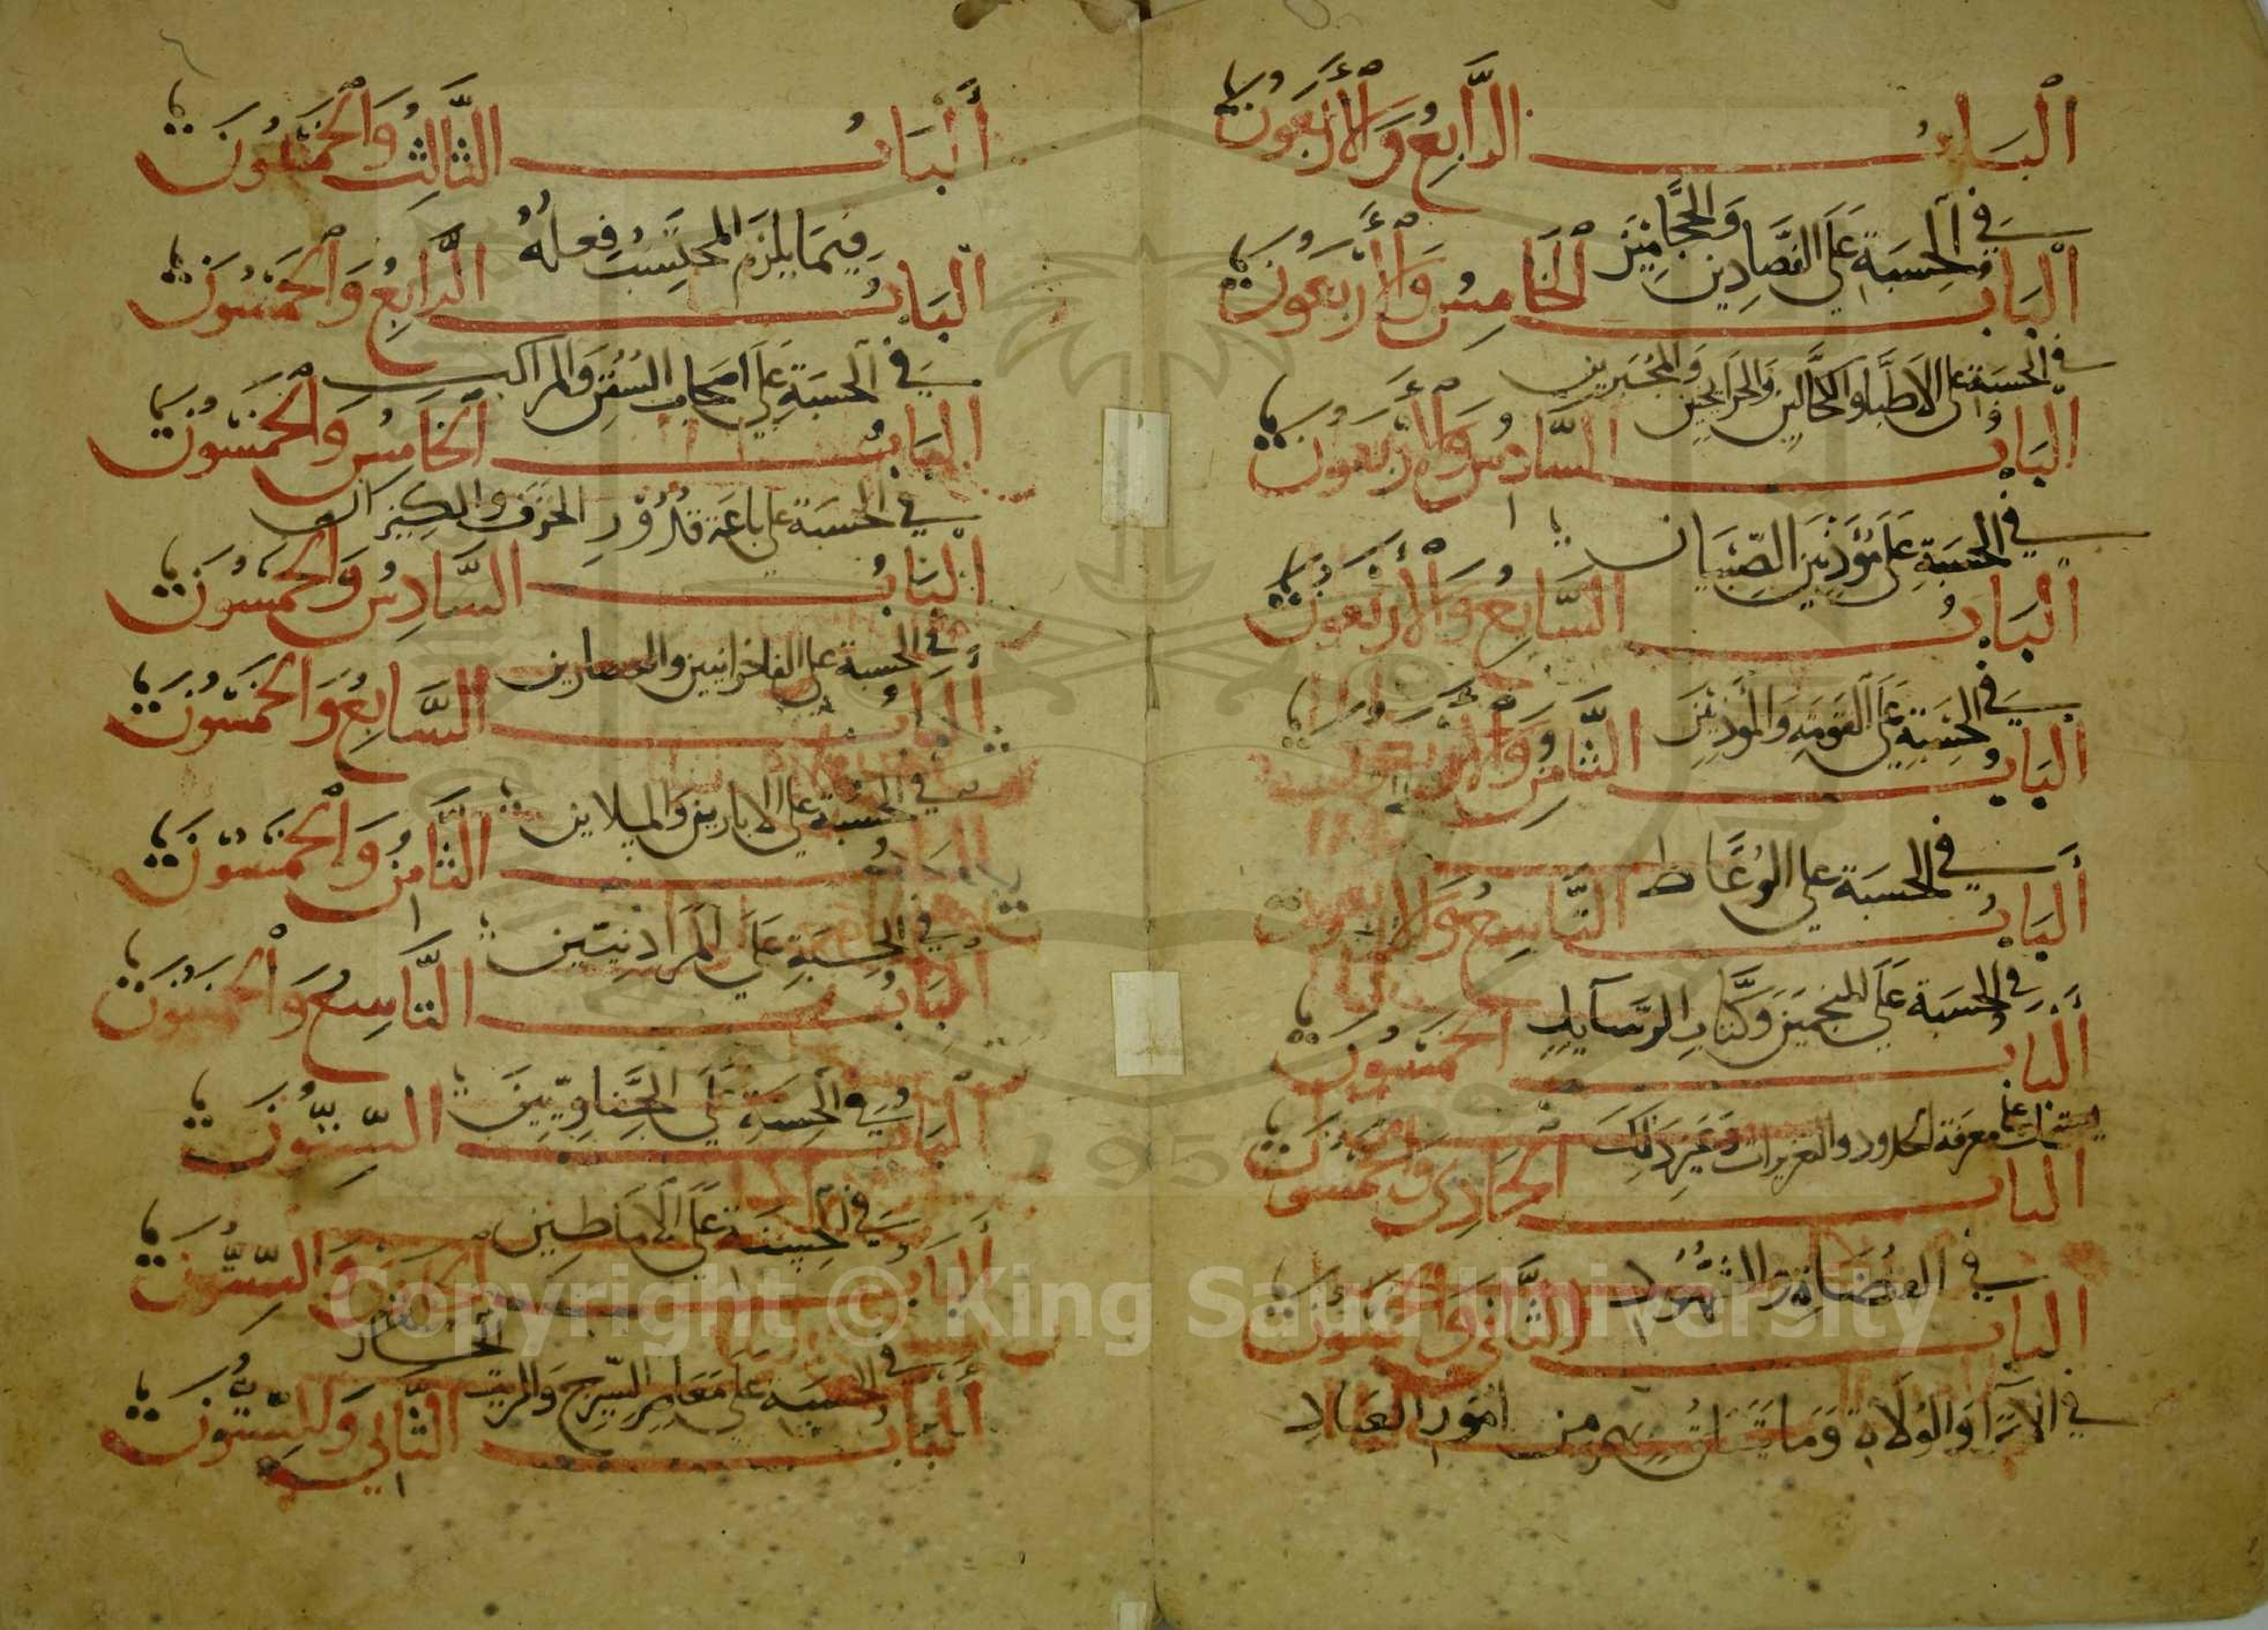 اَلْبَابُ الرَّابِعُ وَالْأَرْبَعُونَ
فِي الْحِسْبَةِ عَلَى الفَصَّادِين وَالحَجَّامِيْنَ
اَلْبَابُ الْخَامِسُ وَالْأَرْبَعُونَ
في الحسبة على الاطبا والكحالين والجرايحيين وَالمُجَبِرين
اَلْبَابُ السَّادِسُ وَالْأَرْبَعُونَ
في الحسبةِ عَلَى مُؤَدِّبِيْنَ الصِّبْيَان
اَلْبَابُ السَّابِعُ وَالْأَرْبَعُونَ
فِي الحِسْبَةِ عَلَى القَوَمَةِ وَالمُؤَذِّنِيْنَ
اَلْبَابُ الثَّامِنُ وَالْأَرْبَعُونَ
في الحسبة على الوُعَّاظ
اَلْبَابُ التَّاسِعُ وَالْأَرْبَعُونَ
في الحِسبَة عَلَى المنجمينَ وَكُتَّابِ الرَّسَآيل
اَلْبَابُ الْخَمْسُونَ
يشتمل على معرفة الحدود والتعزيرات وَغَيْرِ ذَلِكَ
الباب الْحَادِي وَالْخَمْسُونَ
في القُضَاةِ والشُهُود
الباب الثَّاني وَالْخَمْسُونَ
في الأُمَرَآ وَالوُلَاةِ وَمَا يَتَعَلَّق بهم من أمُور العباد
أَلْبَابُ الثَّالِثُ وَالْخَمْسُونَ
فِيمَا يَلْزَمُ المحتَسِبُ فِعلُهُ
اَلْبَابُ الرَّابِعُ وَالْخَمْسُونَ
في الحسبَةِ عَلَى اصحَاب السُّفُنِ وَالمراكب
اَلْبَابُ الخَامِسُ وَالْخَمْسُونَ
في الحسبَة على باعَة قُدُوْرِ الخزَفِ والكيزان
اَلْبَابُ السَّادِسُ وَالْخَمْسُونَ
في الحسبة على الفاخرانيين والغضارين
أَلْبَابُ السَّابِعُ وَالْخَمْسُونَ
في الحِسْبَة على الابارين وَالمسلاتين
الباب الثَّامِنُ وَالْخَمْسُونَ
في الحِسبَةِ عَلَى المَرَادنِيّين
الْبَابُ التَّاسِعُ وَالْخَمْسُونَ
فِي الحِسبة عَلَى الحِنَّاوِيّيْنَ
اَلْبَابُ السِّتُّونَ
في الحِسْبَة عَلَى الأَمشَاطِيين
أَلْبَابُ وَالسِّتُّونَ
في الحسبَة عَلَى مَعَاصِر السّيرج وَالزيت الحَار
أَلْبَابُ الثَّانِي وَالسِّتُّونَ
Copyright © King Saud University
1957